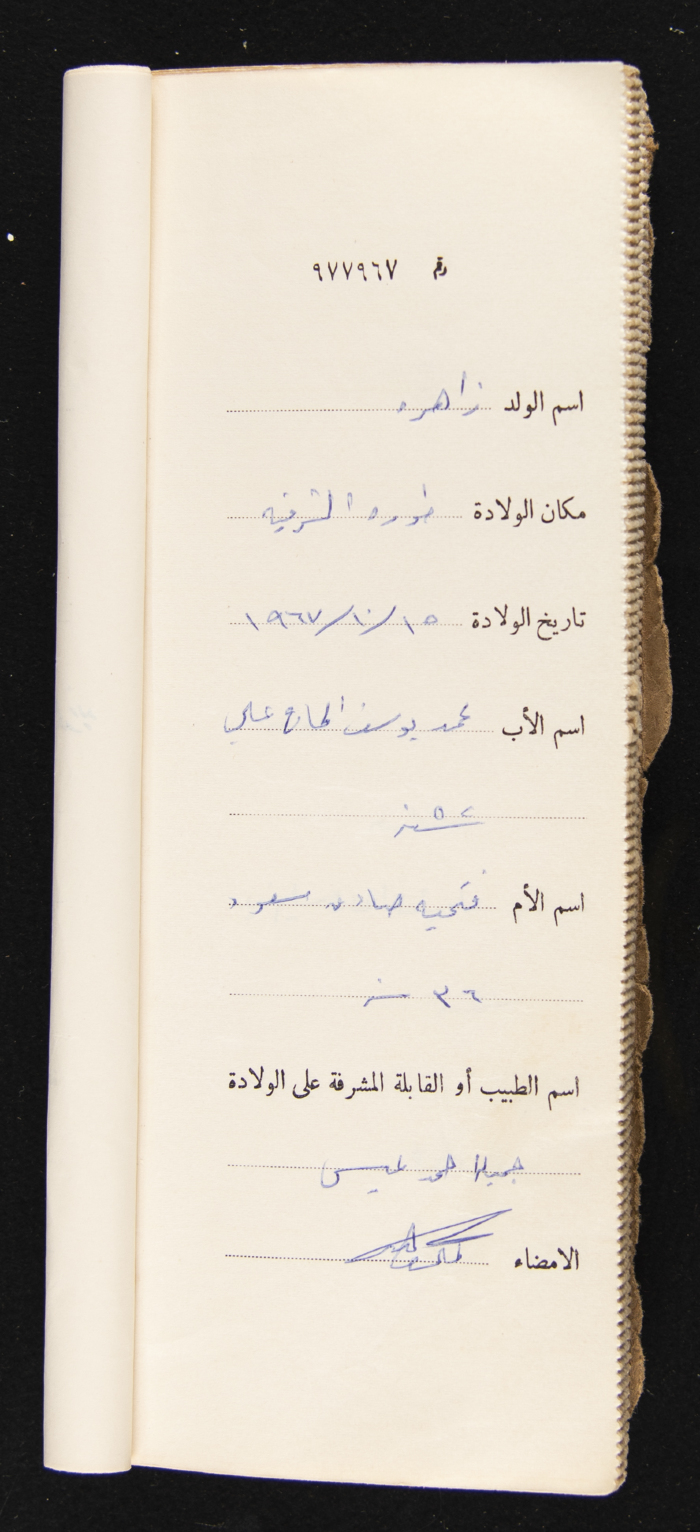 رقم ٩٧٧٩٦٧
اسم الولد زاهره
مكان الولادة طوره الشرقيه
تاريخ الولادة ١٥/١٠/١٩٦٧
اسم الأب محمد يوسف الحاج علي
٥٢ سنه
اسم الأم فتحيه صادق سعود
٣٦ سنه
اسم الطبيب أو القابلة المشرفة على الولادة
جميلا احمد
الامضاء